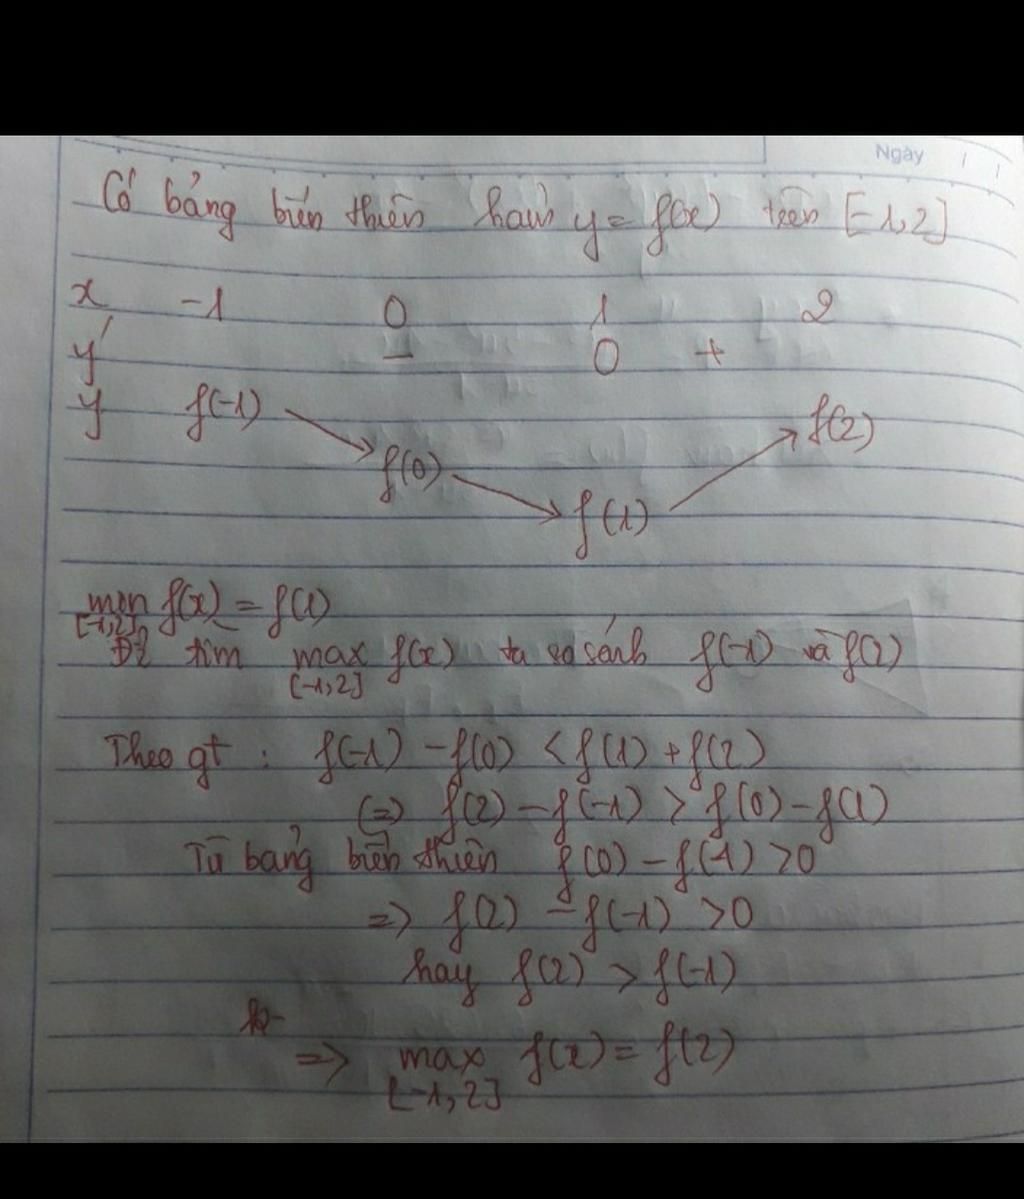 Ngày / /
Có bảng biến thiên hàm y = f(x) trên [-1,2]
x -1 0 1 2
y' - 0 +
y f(-1) f(0) f(1) f(2)
min f(x) = f(1)
[-1,2]
Để tìm max f(x) ta so sánh f(-1) và f(2)
[-1,2]
Theo gt : f(-1) - f(0) < f(1) + f(2)
(=) f(2) - f(-1) > f(0) - f(1)
Từ bảng biến thiên f(0) - f(1) > 0
=> f(2) - f(-1) > 0
hay f(2) > f(-1)
=> max f(x) = f(2)
[-1,2]